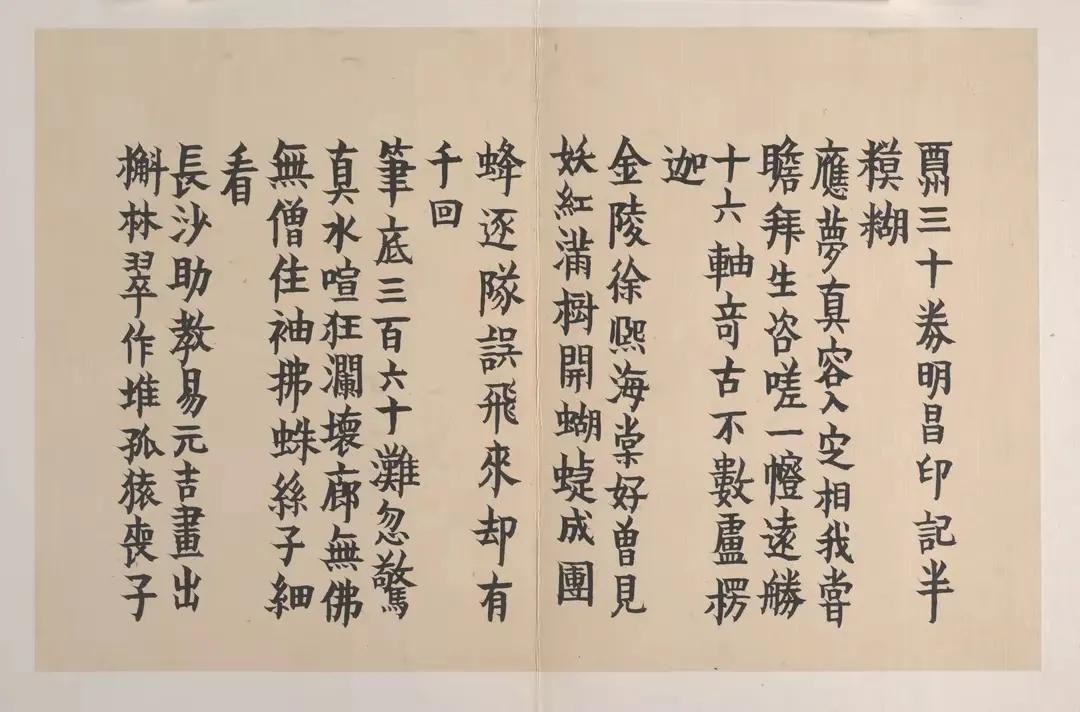 酉州三十券明昌印記半
糢糊
應夢真容入定相我嘗
瞻拜生咨嗟一㡧遠勝
十六軸竒古不數盧楞
迦
金陵徐熙海棠好曽見
妖紅滿樹開蝴蜨成團
蜂逐隊誤飛來却有
千回
筆底三百六十灘忽驚
真水喧狂瀾壞廊無佛
無僧住袖拂蛛絲子細
看
長沙助教易元吉畫出
槲林翠作堆孤猿喪子